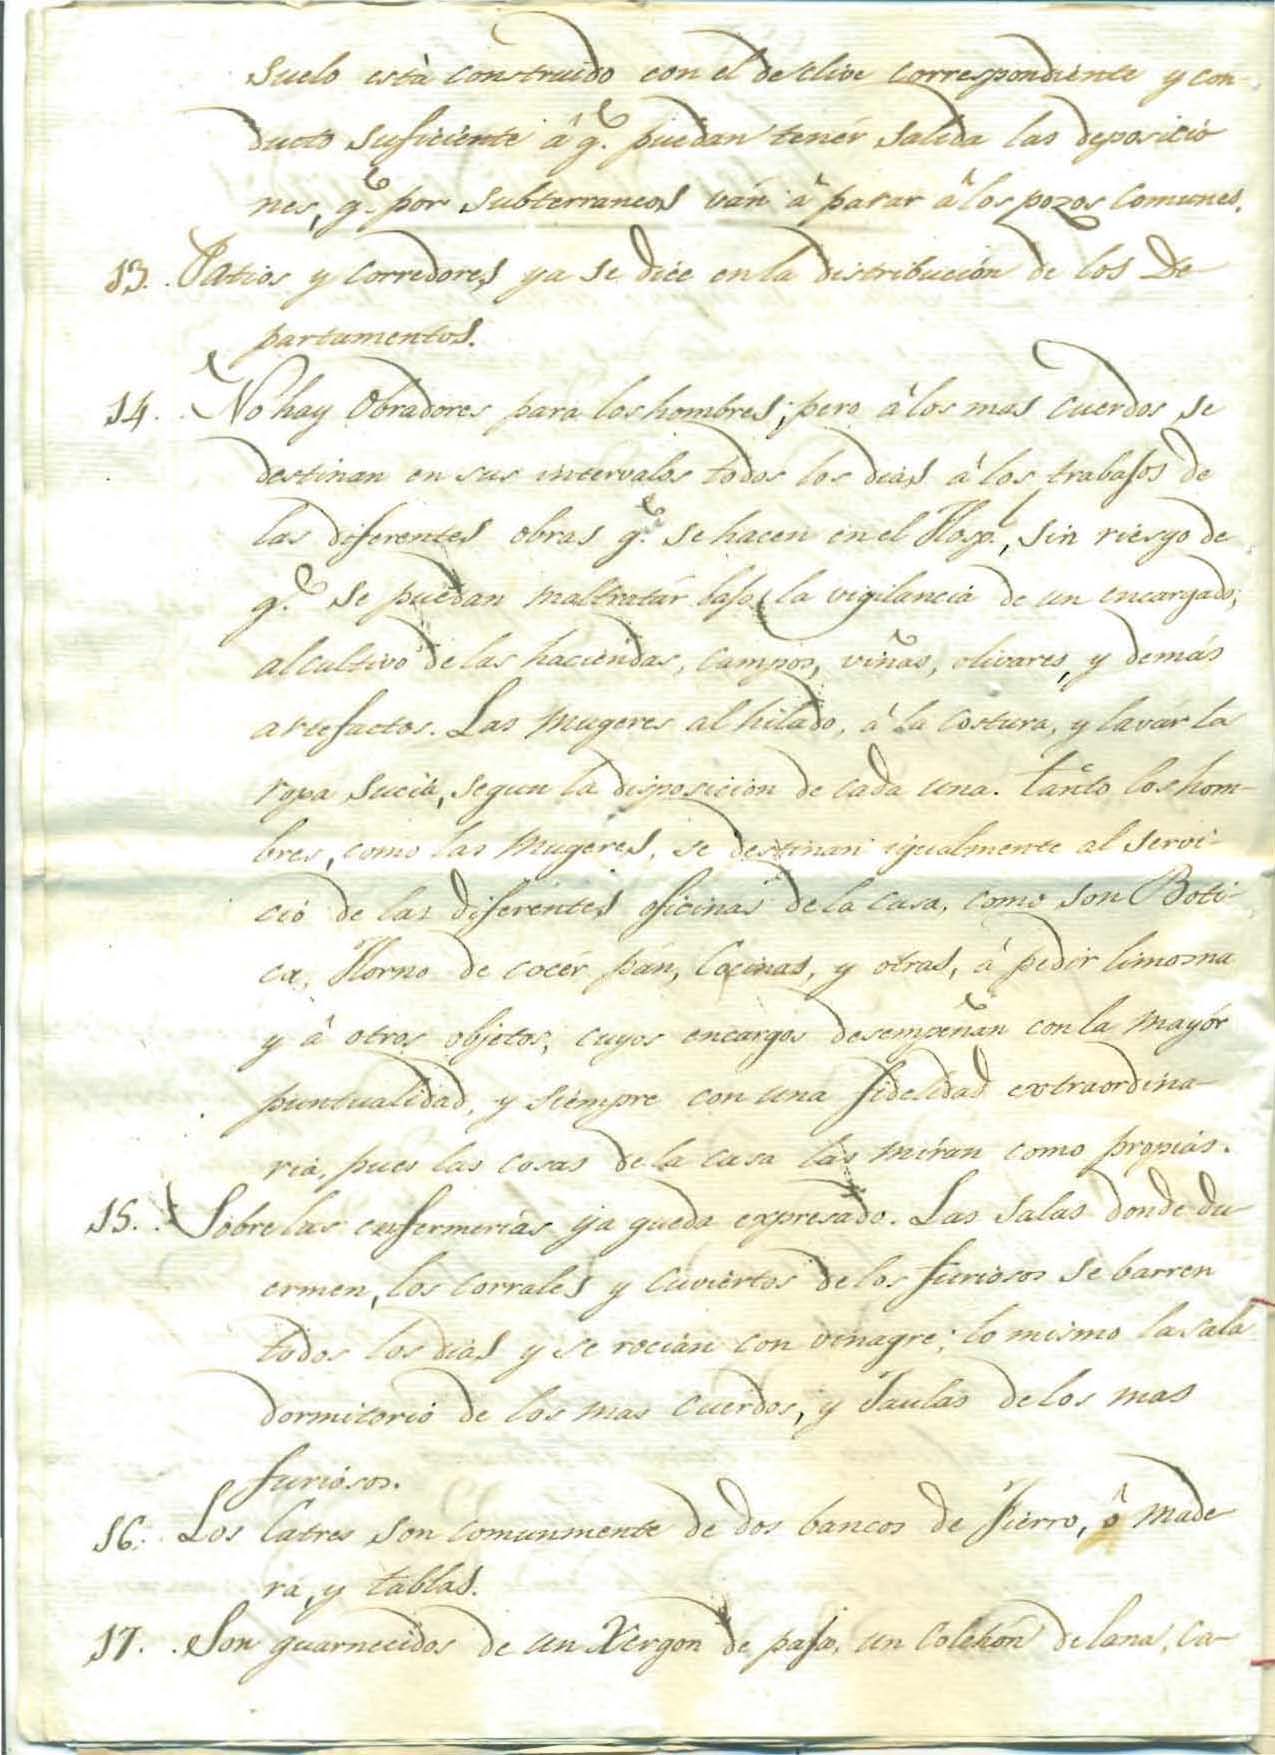 Suelo està construido con el declive correspondiente y con-
ducto suficiente â q.e puedan tenér salida las deposicio
nes, q.e por subterraneos ván â parar â los pozos comunes.
13. Patios y corredores ya se dice en la distribución de los De-
partamentos.
14. No hay Obradores para los hombres; pero â los mas cuerdos se
destinan en sus intervalos todos los dias â los trabajos de
las diferentes obras q.e se hacen en el Hosp.l, sin riesgo de
q.e se puedan maltratár bajo la vigilancia de un encargado;
al cultivo de las haciendas, campos, viñas, olivares, y demás
artefactos. Las Mugeres al hilado, â la costura, y lavár la
ropa sucia, segun la disposicion de cada una. Tanto los hom-
bres, como las Mugeres, se destinan igualmente al servi-
cio de las diferentes oficinas de la casa, como son Boti-
ca, Horno de cocér pán, Cocinas, y otras, á pedir limosna
y â otros objetos; cuyos encargos desempeñan con la mayór
puntualidad, y siempre con una fidelidad extraordina-
ria, pues las cosas de la casa las miran como propias.
15. Sobre las enfermerías ya queda expresado. Las salas donde du-
ermen, los corrales y cuviertos de los furiosos se barren
todos los dias y se rocían con vinagre; lo mismo la sala
dormitorio de los mas cuerdos, y Jaulas de los mas
furiosos.
16. Los Catres son comunmente de dos bancos de Fierro, ô made
ra, y tablas.
17. Son guarnecidos de un Xergon de paja, un Colchón de lana, ca-